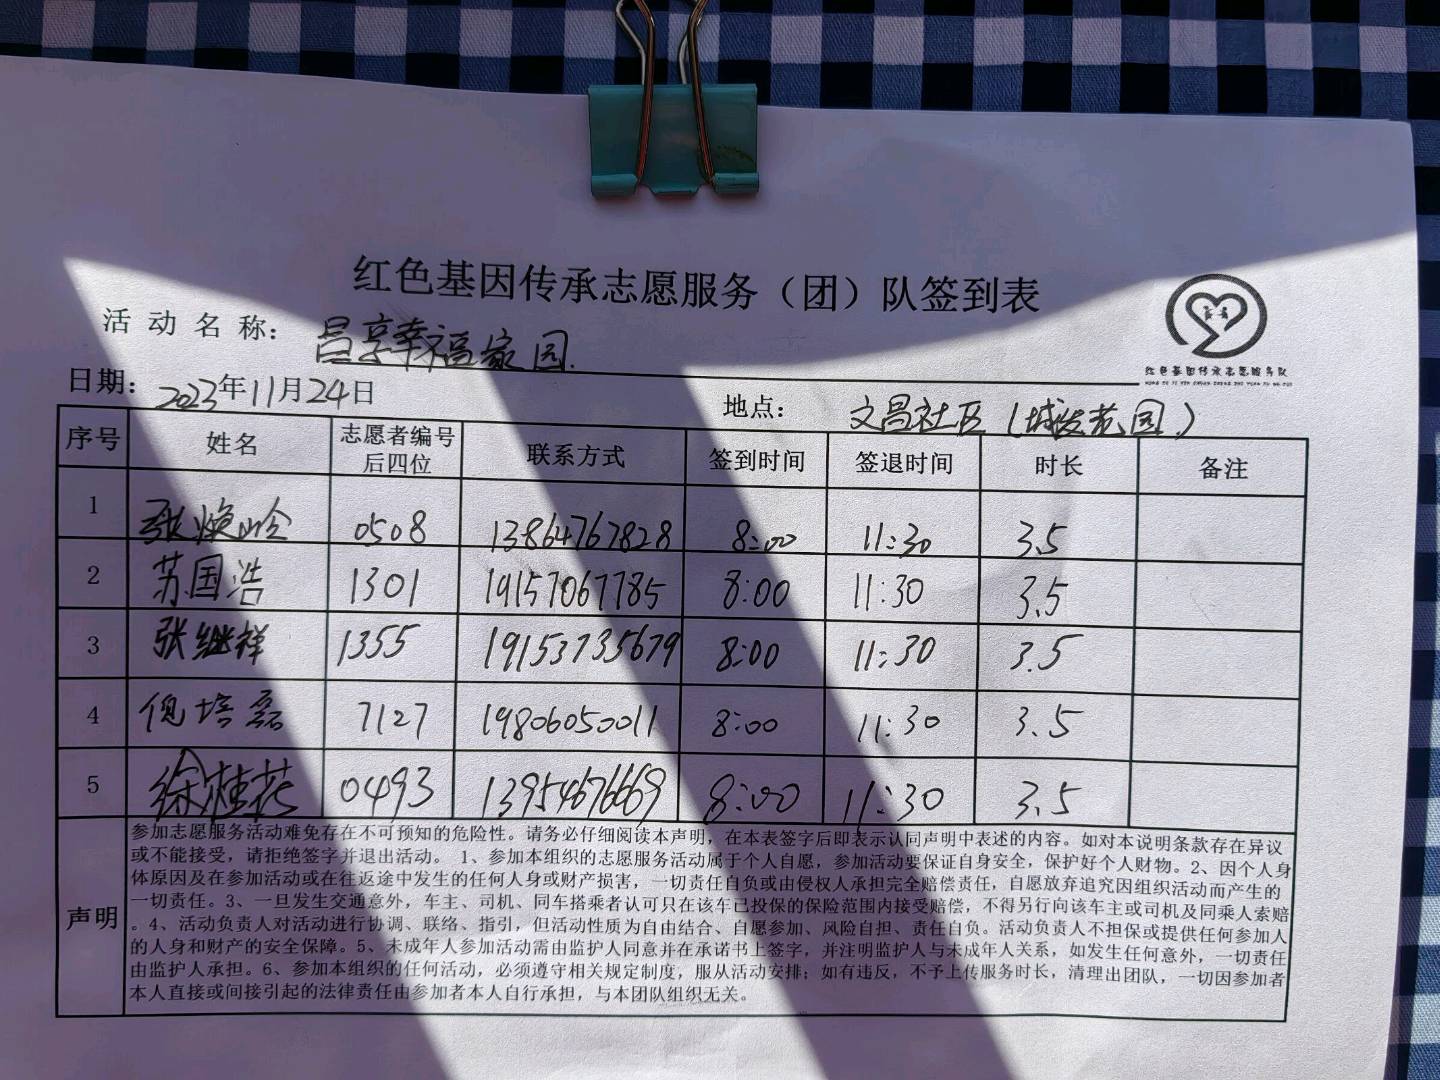 红色基因传承志愿服务（团）队签到表
活动名称： 昌享幸福家园
红色基因传承志愿服务队
日期：2023年11月24日 地点： 文昌社区（城投花园）
序号 姓名 志愿者编号后四位 联系方式 签到时间 签退时间 时长 备注
1 张焕岭 0508 13864767828 8:00 11:30 3.5
2 苏国浩 1301 19157067785 8:00 11:30 3.5
3 张继祥 1355 19153735679 8:00 11:30 3.5
4 倪培磊 7127 19806050011 8:00 11:30 3.5
5 徐桂花 0493 13954676669 8:00 11:30 3.5
声明
参加志愿服务活动难免存在不可预知的危险性。请务必仔细阅读本声明，在本表签字后即表示认同声明中表述的内容。如对本说明条款存在异议
或不能接受，请拒绝签字并退出活动。 1、参加本组织的志愿服务活动属于个人自愿，参加活动要保证自身安全，保护好个人财物。2、因个人身
体原因及在参加活动或在往返途中发生的任何人身或财产损害，一切责任自负或由侵权人承担完全赔偿责任，自愿放弃追究因组织活动而产生的
一切责任。3、一旦发生交通意外，车主、司机、同车搭乘者认可只在该车已投保的保险范围内接受赔偿，不得另行向该车主或司机及同乘人索赔
。4、活动负责人对活动进行协调、联络、指引，但活动性质为自由结合、自愿参加、风险自担、责任自负。活动负责人不担保或提供任何参加人
的人身和财产的安全保障。5、未成年人参加活动需由监护人同意并在承诺书上签字，并注明监护人与未成年人关系，如发生任何意外，一切责任
由监护人承担。6、参加本组织的任何活动，必须遵守相关规定制度，服从活动安排；如有违反，不予上传服务时长，清理出团队，一切因参加者
本人直接或间接引起的法律责任由参加者本人自行承担，与本团队组织无关。